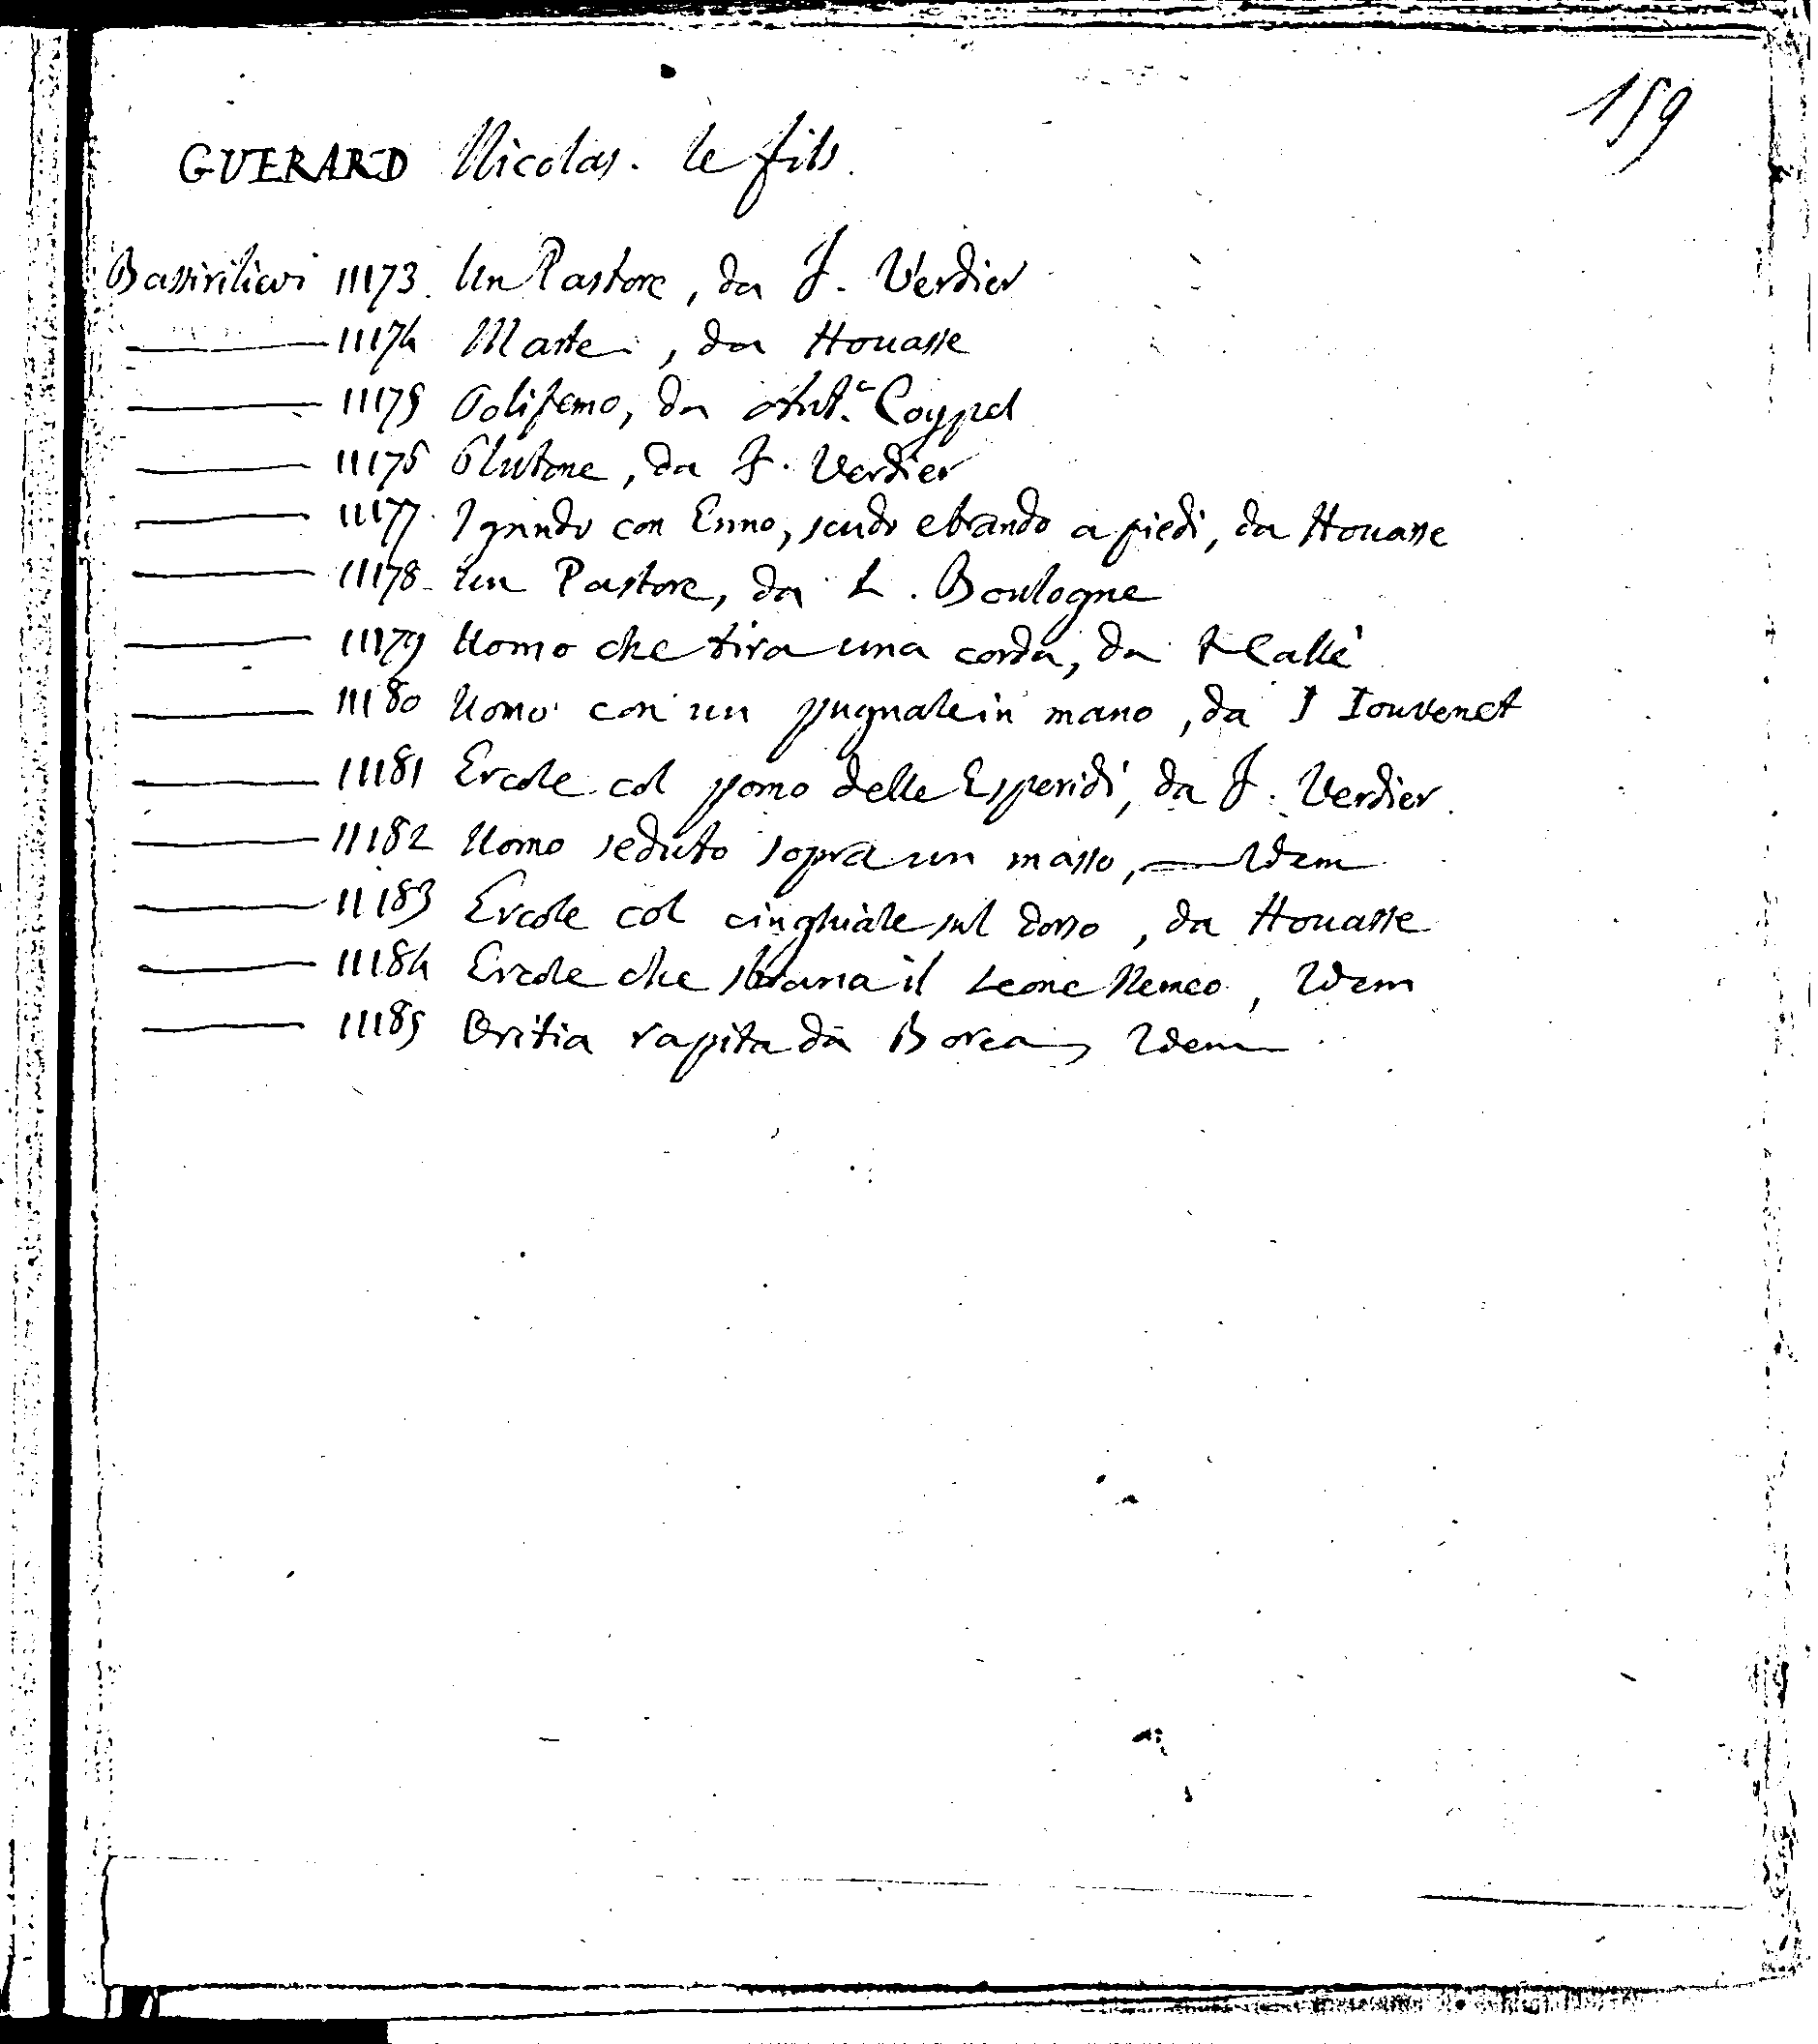 159
GUERARD Nicolas. le fils.
Bassirilievi 11173. Un Pastore, da F. Verdier
11174 Marte, da Houasse
11175 Polifemo, da Ant.e Coypel
11176 Plutone, da F. Verdier
11177. Ignudo con Elmo, scudo e brando a piedi, da Houasse
11178 un Pastore, da L. Boulogne
11179 Uomo che tira una corda, da
11180 Uomo con un pugnale in mano, da I Iouvenet
11181 Ercole col pomo delle Esperidi, da F. Verdier.
11182 Uomo seduto sopra un masso, Idem
11183 Ercole col cinghiale sul dosso, da Houasse
11184 Ercole che sbrana il Leone Nemeo, Idem
11185 Oritia rapita da Borea, Idem